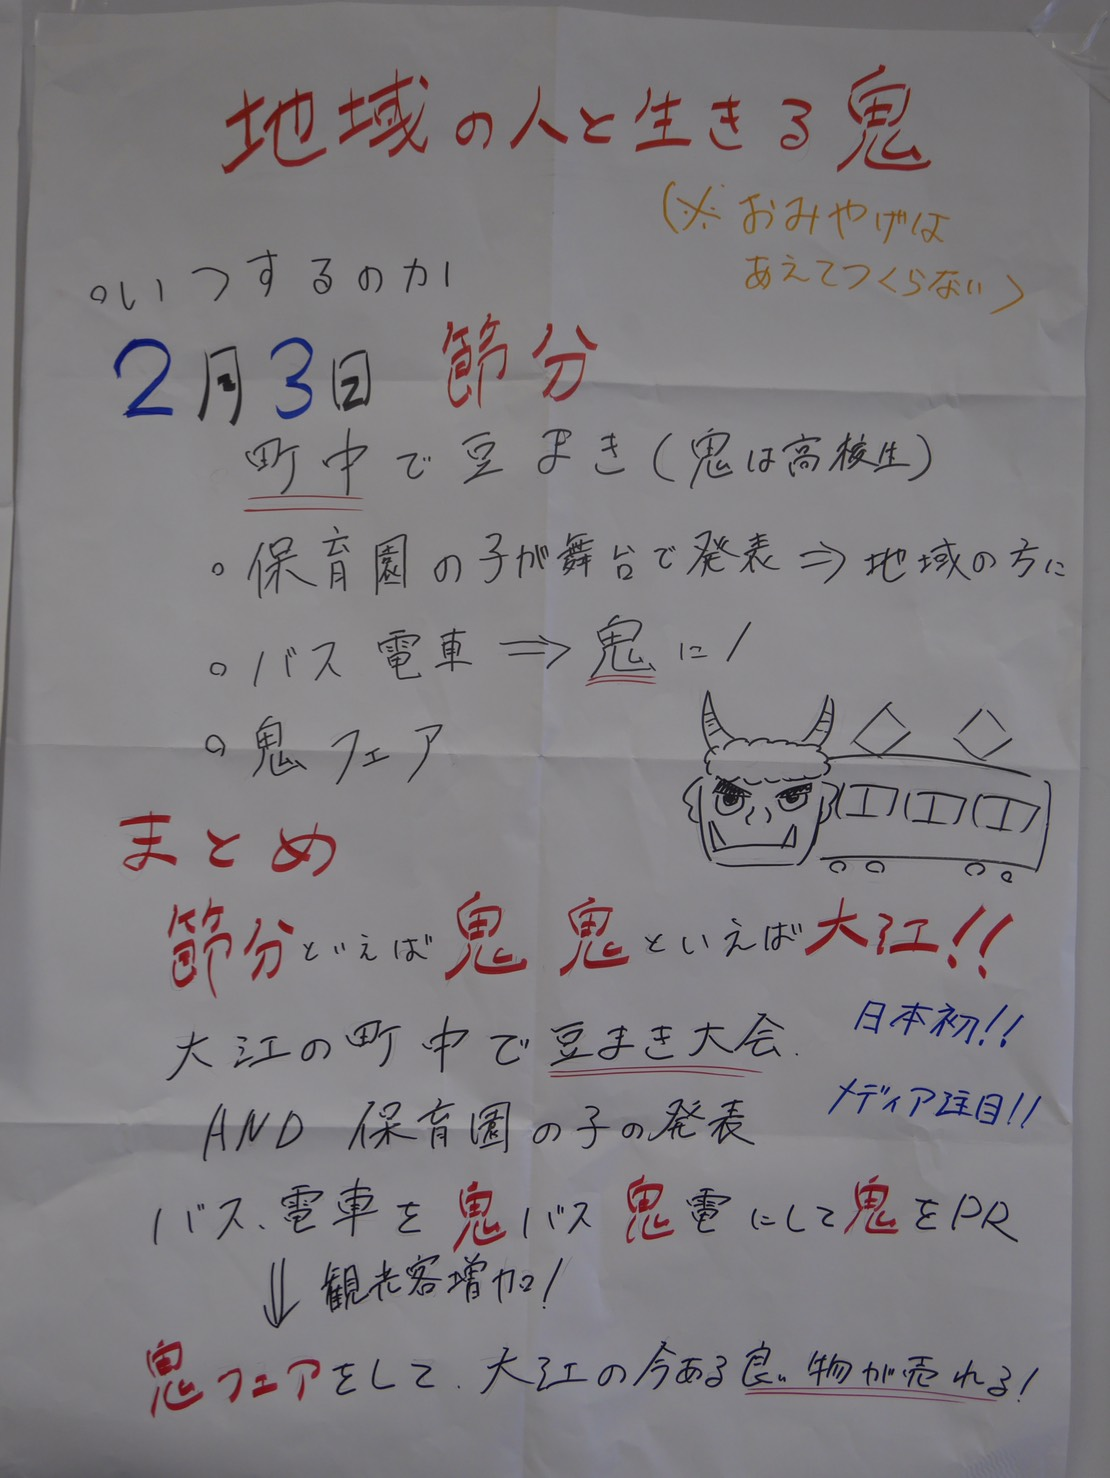 地域の人と生きる鬼
(※おみやげは
あえてつくらない)
○いつするのか
2月3日 節分
町中で豆まき(鬼は高校生)
○保育園の子が舞台で発表⇒地域の方に
○バス電車⇒鬼に!
○鬼フェア
まとめ
節分といえば鬼 鬼といえば大江!!
大江の町中で豆まき大会.
日本初!!
AND 保育園の子の発表
メディア注目!!
バス、電車を鬼バス鬼電にして鬼をPR
⇓観光客増加!
鬼フェアをして、大江の今ある良い物が売れる!